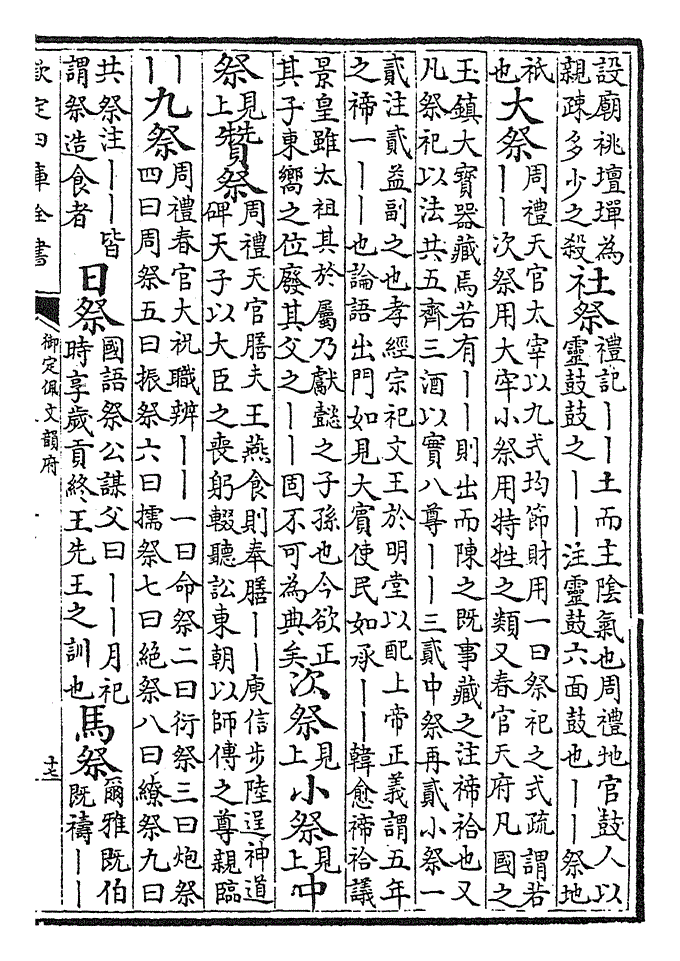 設廟祧壇墠為親疎多少之殺社祭禮記丨丨土而主陰氣也周禮地官鼓人以靈鼓鼓之丨丨注靈鼓六面鼓也丨丨祭地
祇也大祭周禮天官太宰以九式均節財用一曰祭祀之式疏謂若丨丨次祭用大牢小祭用特牲之類又春官天府凡國之
玉鎮大寶器藏焉若有丨丨則出而陳之既事藏之注禘祫也又凡祭祀以法共五齊三酒以實八尊丨丨三貳中祭再貳小祭一
貳注貳益副之也孝經宗祀文王於明堂以配上帝正義謂五年之禘一丨丨也論語出門如見大賓使民如承丨丨韓愈禘祫議
景皇雖太祖其於屬乃獻懿之子孫也今欲正其子東嚮之位廢其父之丨丨固不可為典矣次祭見上小祭見上中
祭見上贊祭周禮天官膳夫王燕食則奉膳丨丨庾信步陸逞神道碑天子以大臣之喪躬輟聽訟東朝以師傅之尊親臨
丨丨九祭周禮春官大祝職辨丨丨一曰命祭二曰衍祭三曰炮祭四曰周祭五曰振祭六曰擩祭七曰絶祭八曰繚祭九曰
共祭注丨丨皆謂祭造食者日祭國語祭公謀父曰丨丨月祀時享歲貢終王先王之訓也馬祭爾雅既伯既禱丨丨
欽定四庫全書
御定佩文韻府
十七